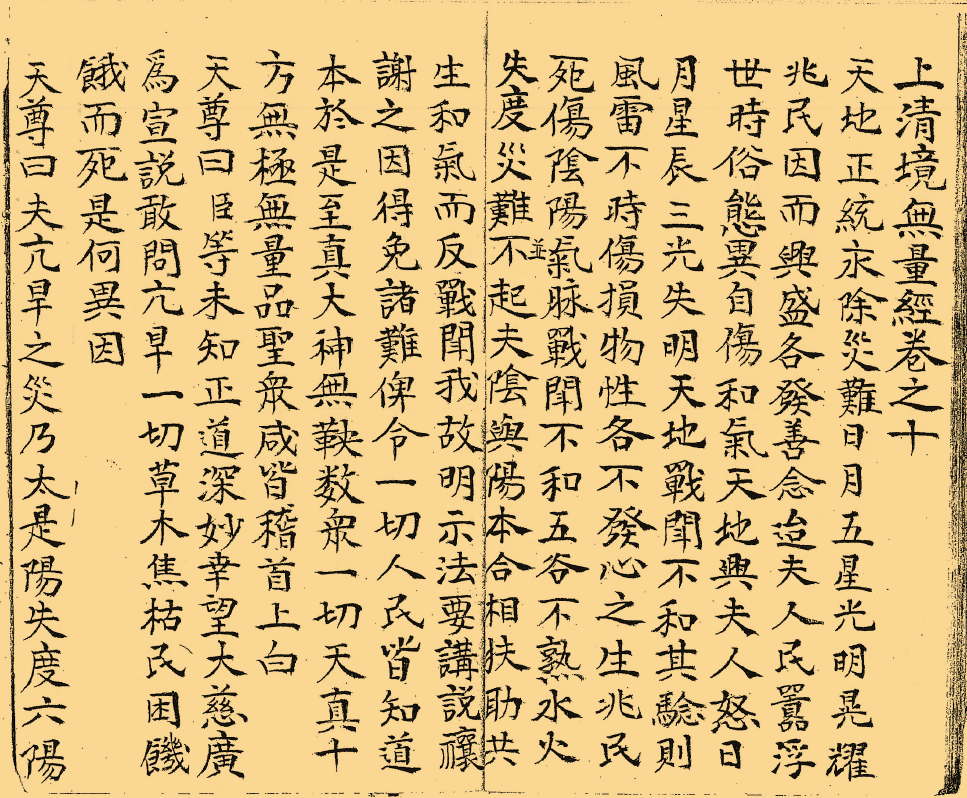 上清境無量經卷之十
天地正統永除災難日月五星光明晃耀
兆民因而興盛各發善念迨夫人民囂浮
世時俗態異自傷和氣天地與夫人怒日
月星辰三光失明天地戰鬪不和其驗則
風雷不時傷損物性各不發心之生兆民
死傷陰陽氣脉戰鬪不和五谷不熟水火
失度災難不並起夫陰與陽本合相扶助共
生和氣而反戰鬪我故明示法要講説禳
謝之因得免諸難俾令一切人民皆知道
本於是至真大神無鞅数衆一切天真十
方無極無量品聖衆咸皆稽首上白
天尊曰臣等未知正道深妙幸望大慈廣
爲宣説敢問亢旱一切草木焦枯民困饑
餓而死是何異因
天尊曰夫亢旱之災乃太是陽失度六陽